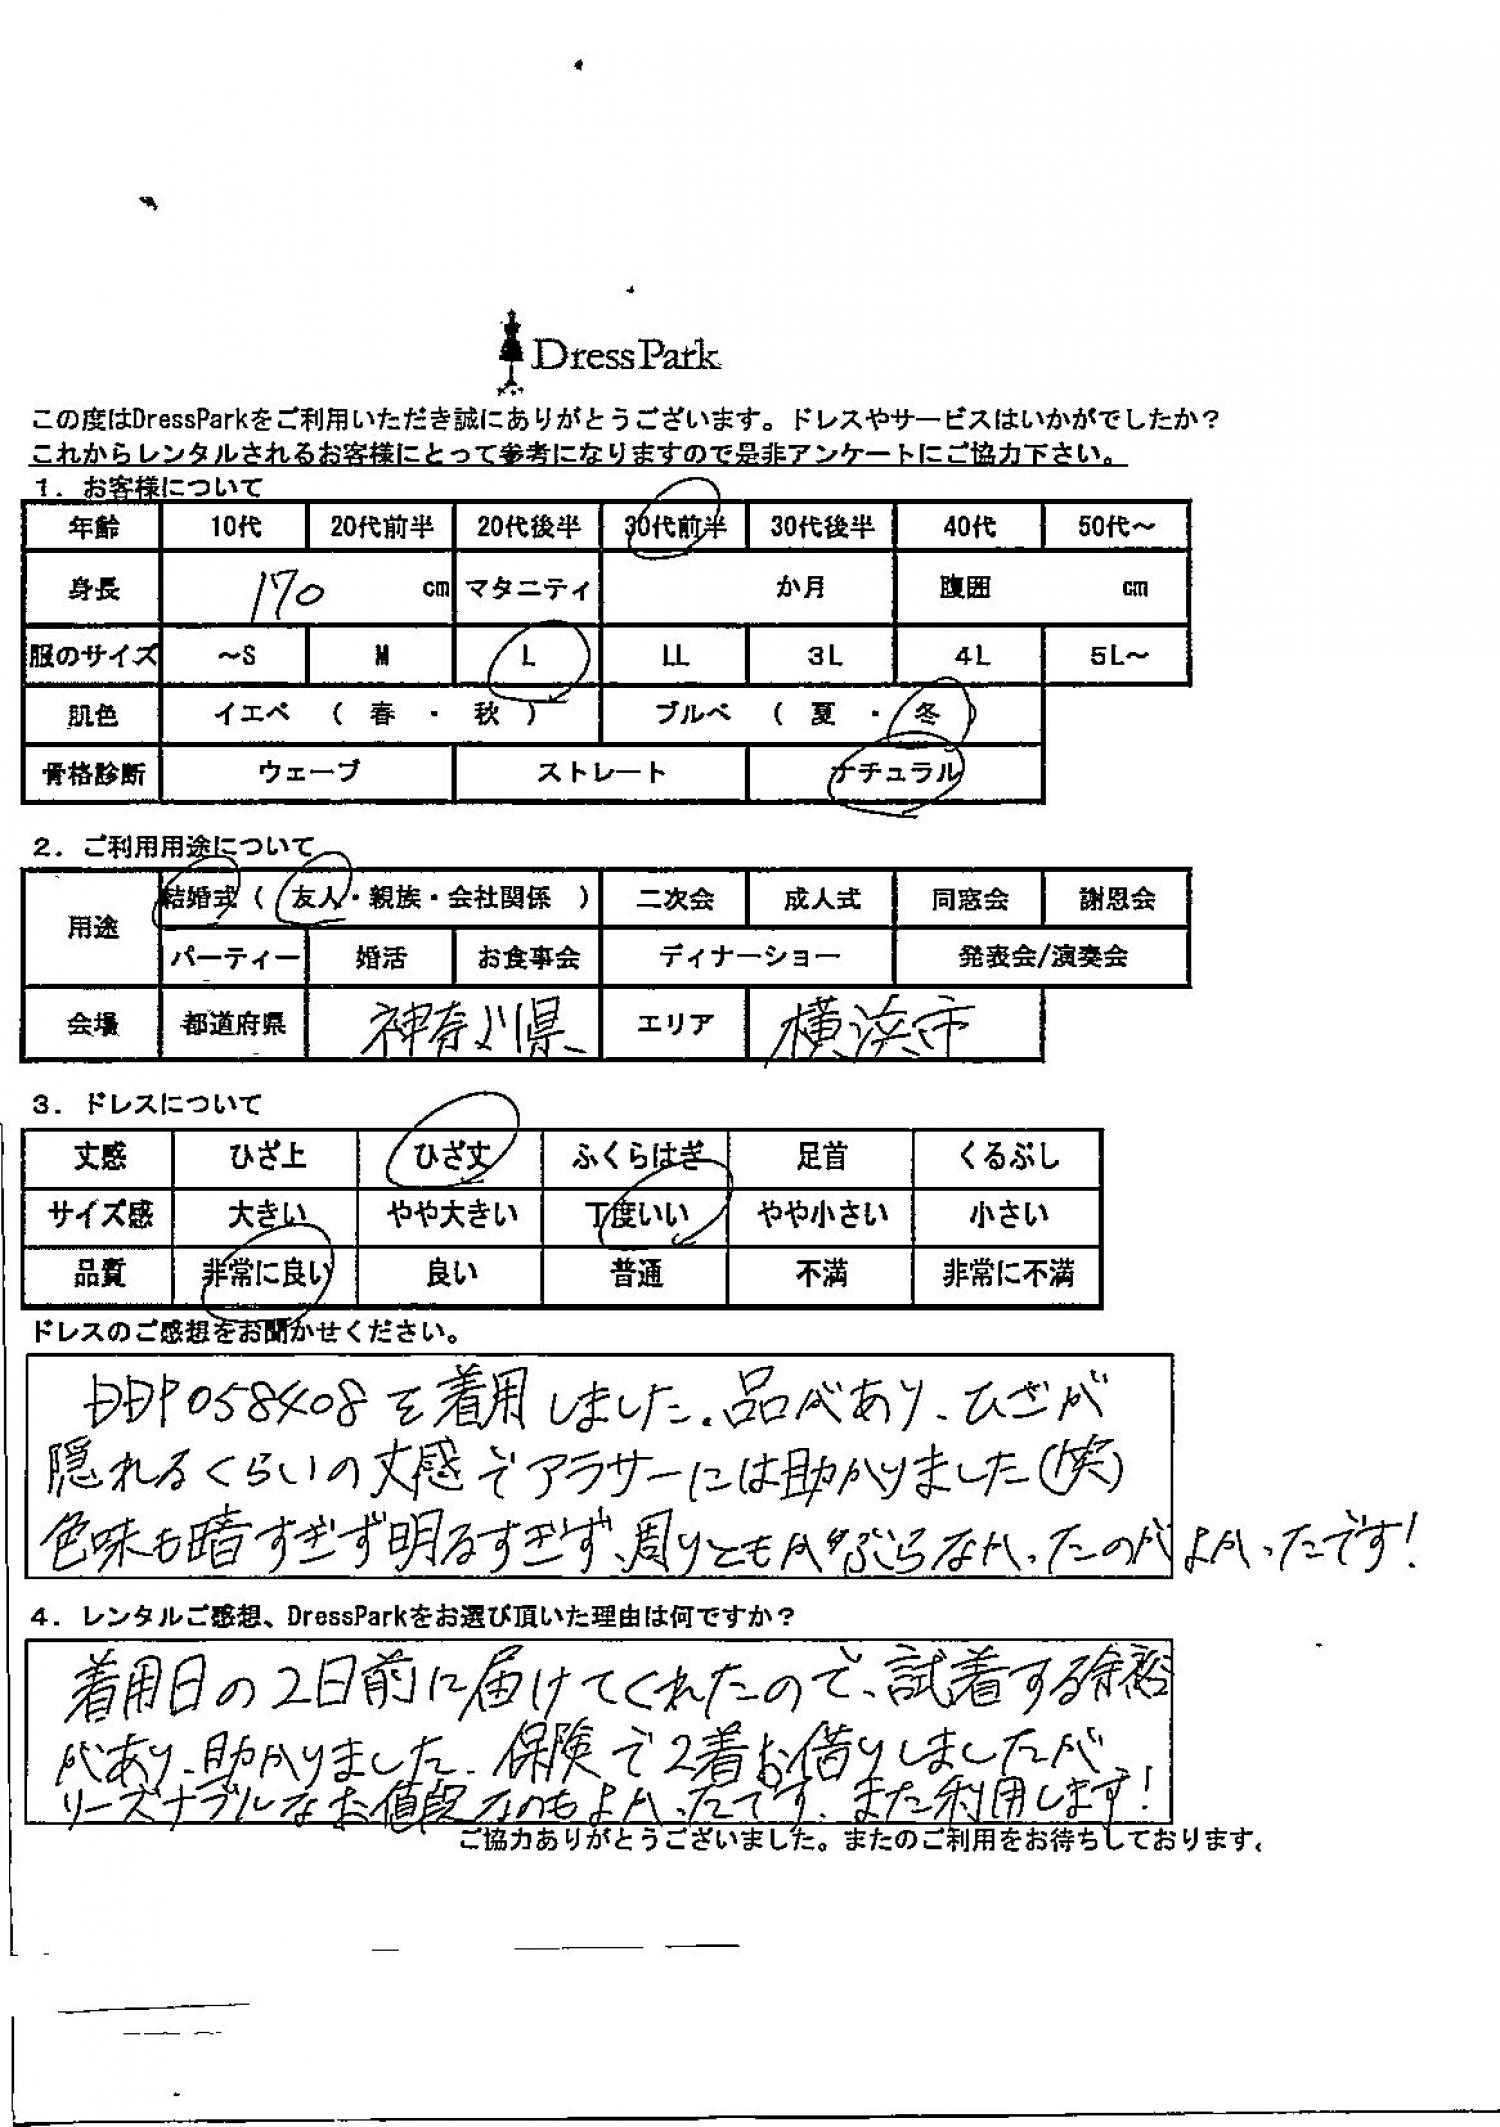 DressPark
この度はDressParkをご利用いただき誠にありがとうございます。ドレスやサービスはいかがでしたか？
これからレンタルされるお客様にとって参考になりますので是非アンケートにご協力下さい。
１．お客様について
年齢 10代 20代前半 20代後半 30代前半 30代後半 40代 50代～
身長 170 cm マタニティ か月 腹囲 cm
服のサイズ ～S M L LL 3L 4L 5L～
肌色 イエベ （ 春 ・ 秋 ） ブルベ （ 夏 ・ 冬 ）
骨格診断 ウェーブ ストレート ナチュラル
２．ご利用用途について
用途 結婚式（ 友人・親族・会社関係 ） 二次会 成人式 同窓会 謝恩会
パーティー 婚活 お食事会 ディナーショー 発表会/演奏会
会場 都道府県 神奈川県 エリア 横浜市
３．ドレスについて
丈感 ひざ上 ひざ丈 ふくらはぎ 足首 くるぶし
サイズ感 大きい やや大きい 丁度いい やや小さい 小さい
品質 非常に良い 良い 普通 不満 非常に不満
ドレスのご感想をお聞かせください。
DDP058408を着用しました。品があり、ひざが
隠れるくらいの丈感でアラサーには助かりました(笑)
色味も暗すぎず明るすぎず、周りともかぶらなかったのがよかったです！
４．レンタルご感想、DressParkをお選び頂いた理由は何ですか？
着用日の2日前に届けてくれたので、試着する余裕
があり、助かりました。保険で2着お借りしましたが
リーズナブルなお値段なのもよかったです。また利用します！
ご協力ありがとうございました。またのご利用をお待ちしております。